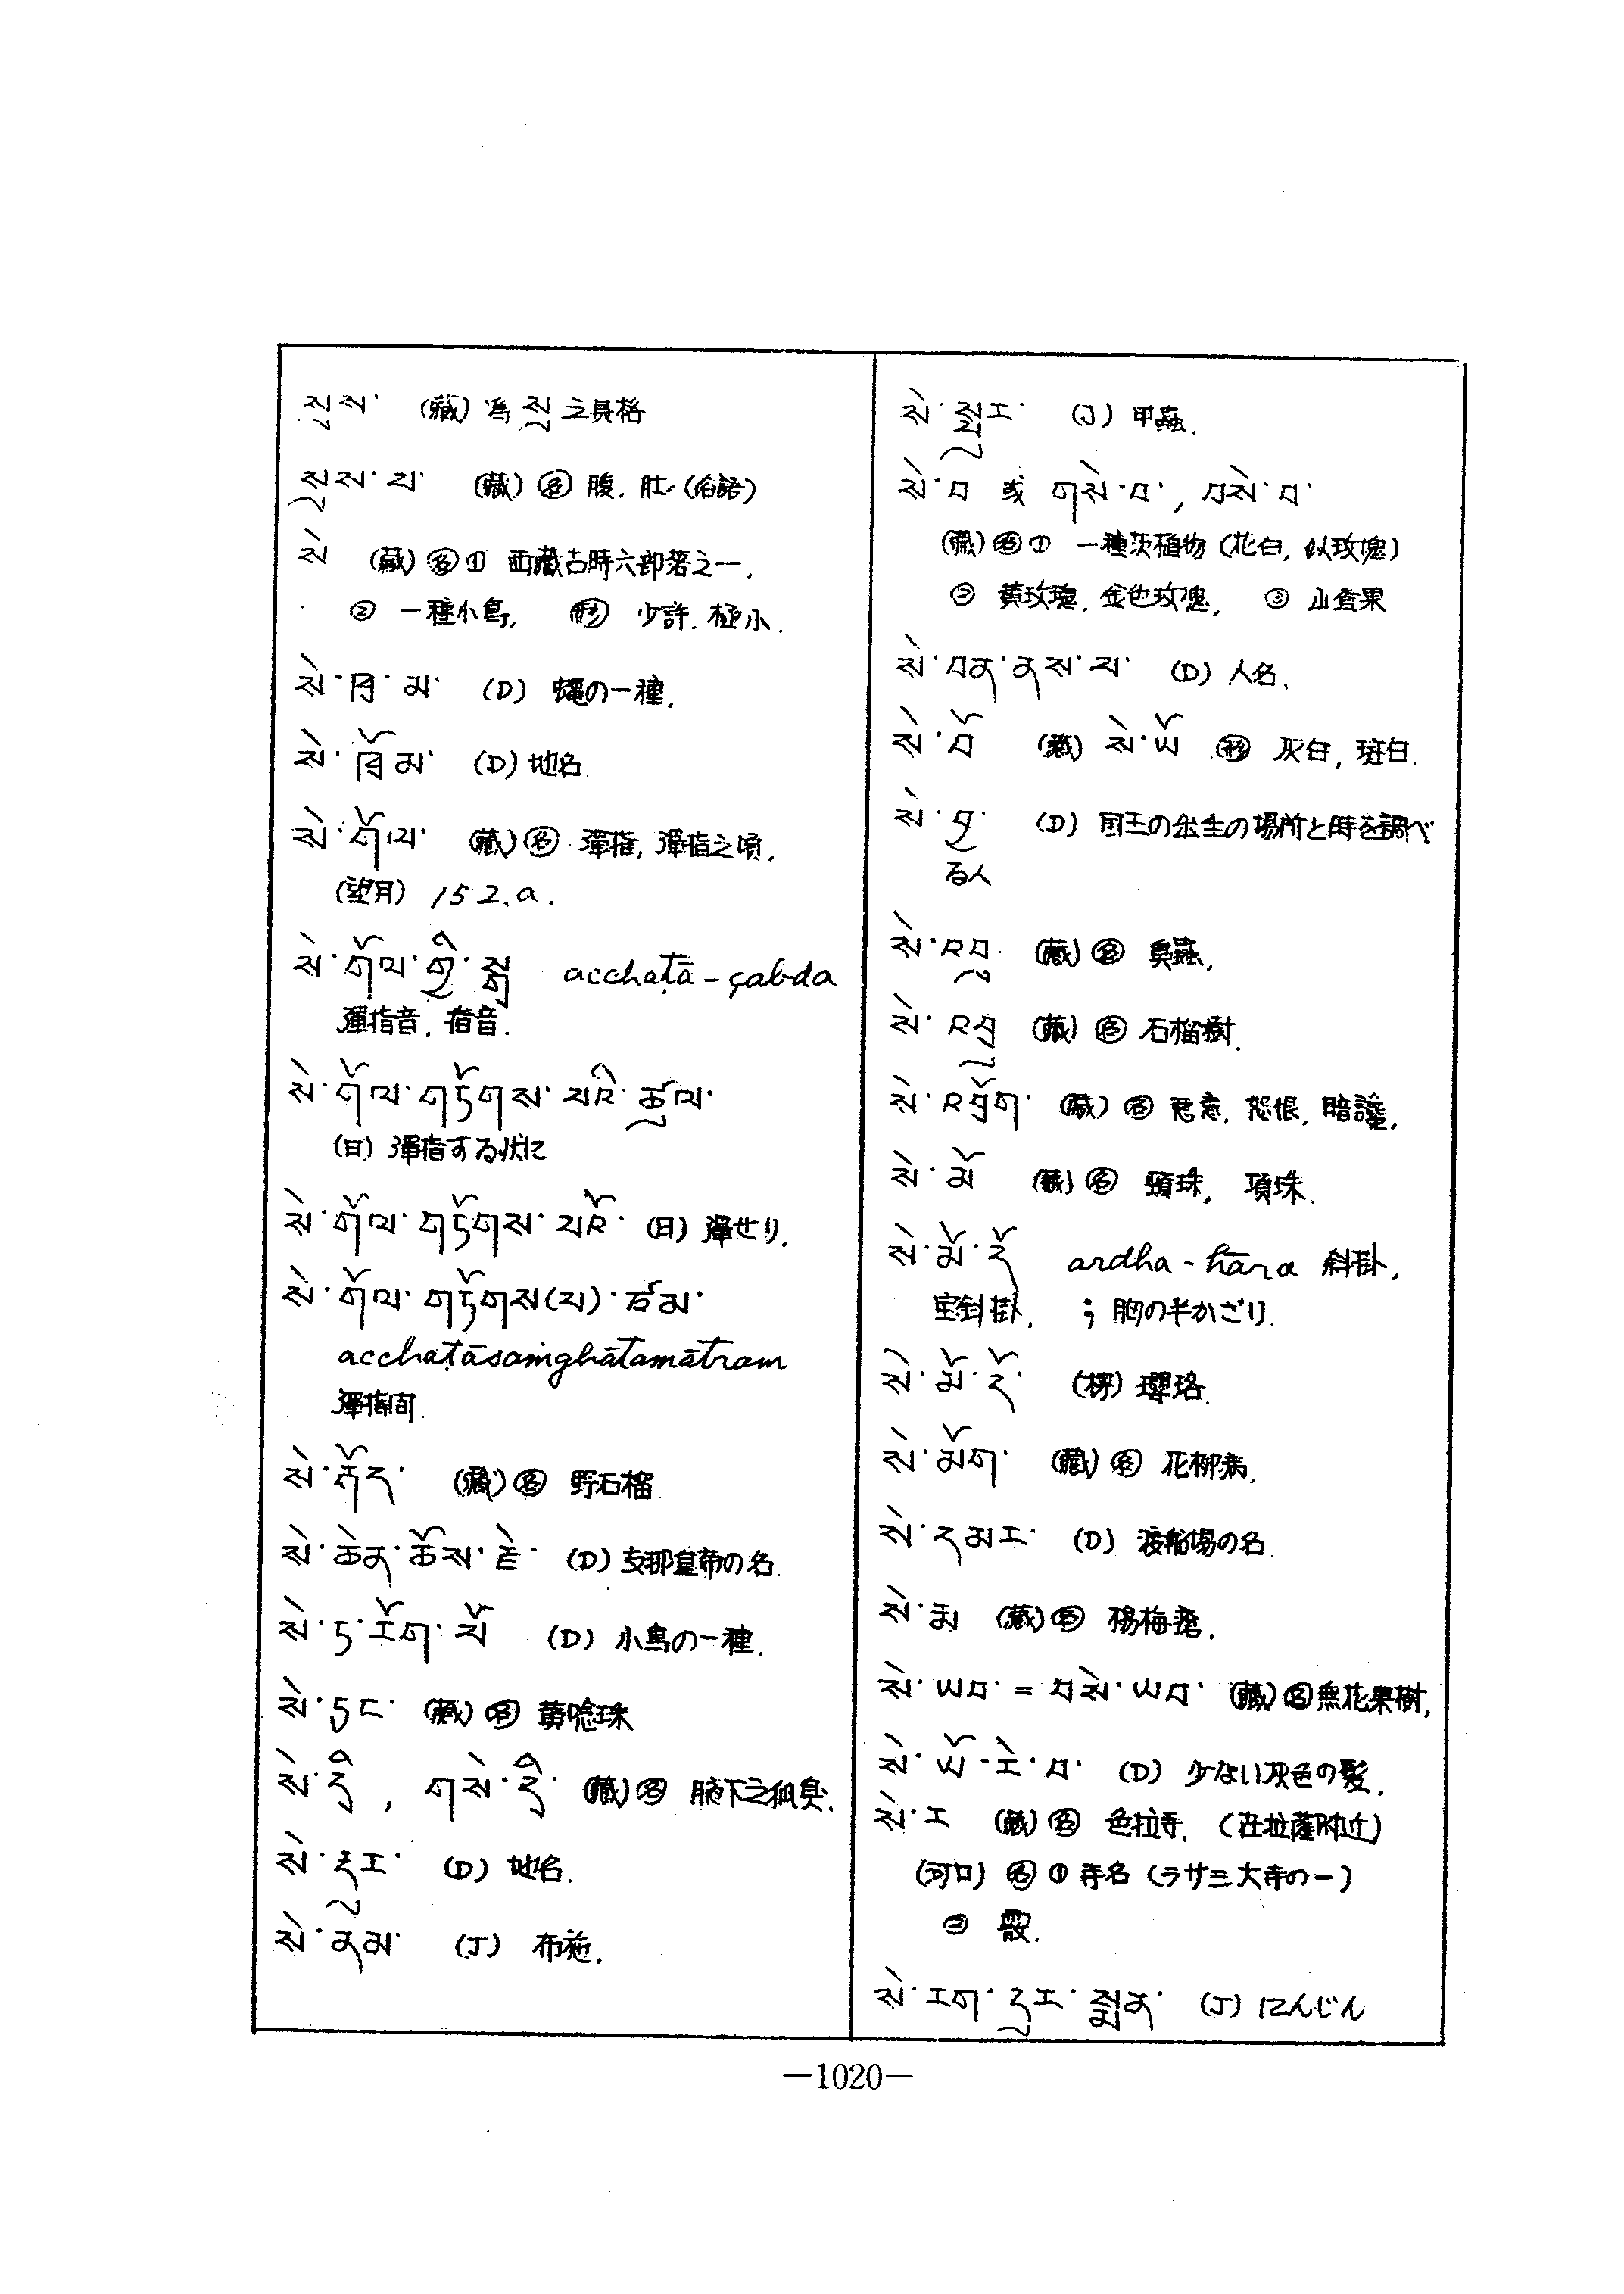 སུས་ (藏) 爲 སུ 之具格
སུས་པ་ (藏) 名 腹, 肚 (俗語)
སེ (藏) 名 ① 西藏古時六部落之一,
② 一種小鳥, 形 少許, 極小.
སེ་ཁ་མ་ (D) 蠅の一種.
སེ་ཁོམ་ (D) 地名.
སེ་གོལ་ (藏) 名 彈指, 彈指之頃.
(望月) 152.a.
སེ་གོལ་གྱི་སྒྲ acchaṭā-çabda
彈指音, 指音.
སེ་གོལ་གཏོགས་པའི་ཚུལ་
(日) 彈指する状に
སེ་གོལ་གཏོགས་པའོ་ (日) 彈せり.
སེ་གོལ་གཏོགས(པ)་ཙམ་
acchaṭāsaṁghātamātram
彈指間.
སེ་ཏོར་ (藏) 名 野石榴
སེ་ཆེན་ཆོས་རྗེ་ (D) 支那皇帝の名.
སེ་ད་ཟོག་པོ (D) 小鳥の一種.
སེ་དང་ (藏) 名 黄唸珠
སེ་དྲི, གསེ་དྲི་ (藏) 名 腋下之狐臭.
སེ་རུཟ་ (D) 地名.
སེ་ནམ་ (J) 布施.
སེ་སྦུར་ (J) 甲蟲.
སེ་བ 或 གསེ་བ་, བསེ་བ་
(藏) 名 ① 一種茨植物 (花白, 似玫瑰)
② 黄玫瑰, 金色玫瑰, ③ 山査果
སེ་བན་ནས་པ་ (D) 人名.
སེ་བོ (藏) སེ་ཡོ 形 灰白, 斑白.
སེ་བྱ་ (D) 国王の出生の場所と時を調べ
る人
སེ་འབུ་ (藏) 名 臭蟲.
སེ་འབྲུ (藏) 名 石榴樹.
སེ་འཕྲོག་ (藏) 名 惡意, 怒恨, 暗護.
སེ་མོ (藏) 名 頸珠, 項珠.
སེ་མོ་དོ ardha-hāra 斜掛,
宝斜掛, ; 胸の半かざり.
སེ་མོ་དོ་ (榜) 瓔珞.
སེ་མོག་ (藏) 名 花柳病.
སེ་རམཟ་ (D) 渡船場の名.
སེ་མ (藏) 名 楊梅瘡.
སེ་ཡབ་ = བསེ་ཡབ་ (藏) 名 無花果樹,
སེ་ཡོ་ཟེ་བ་ (D) 少ない灰色の髪.
སེ་ར (藏) 名 色拉寺. (在拉薩附近)
(河口) 名 ① 寺名 (ラサ三大寺の一)
② 霰.
སེ་རག་དུར་སྨན་ (J) にんじん
—1020—